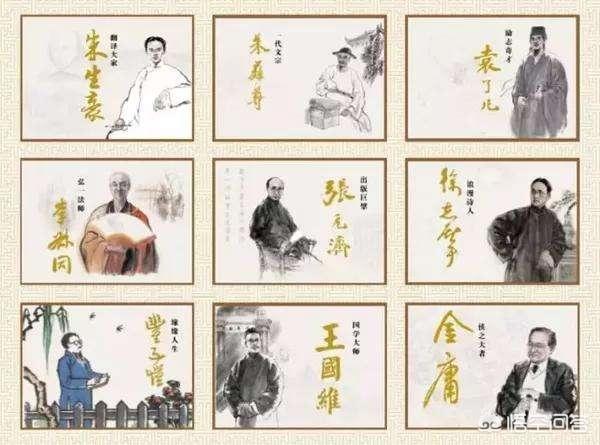 翻译大家
朱生豪
一代文宗
朱彝尊
励志奇才
袁了凡
弘一法师
李叔同
出版巨擘
張元濟
浪漫诗人
徐志摩
缘缘人生
豐子愷
国学大师
王國維
侠之大者
金庸
悟空问答